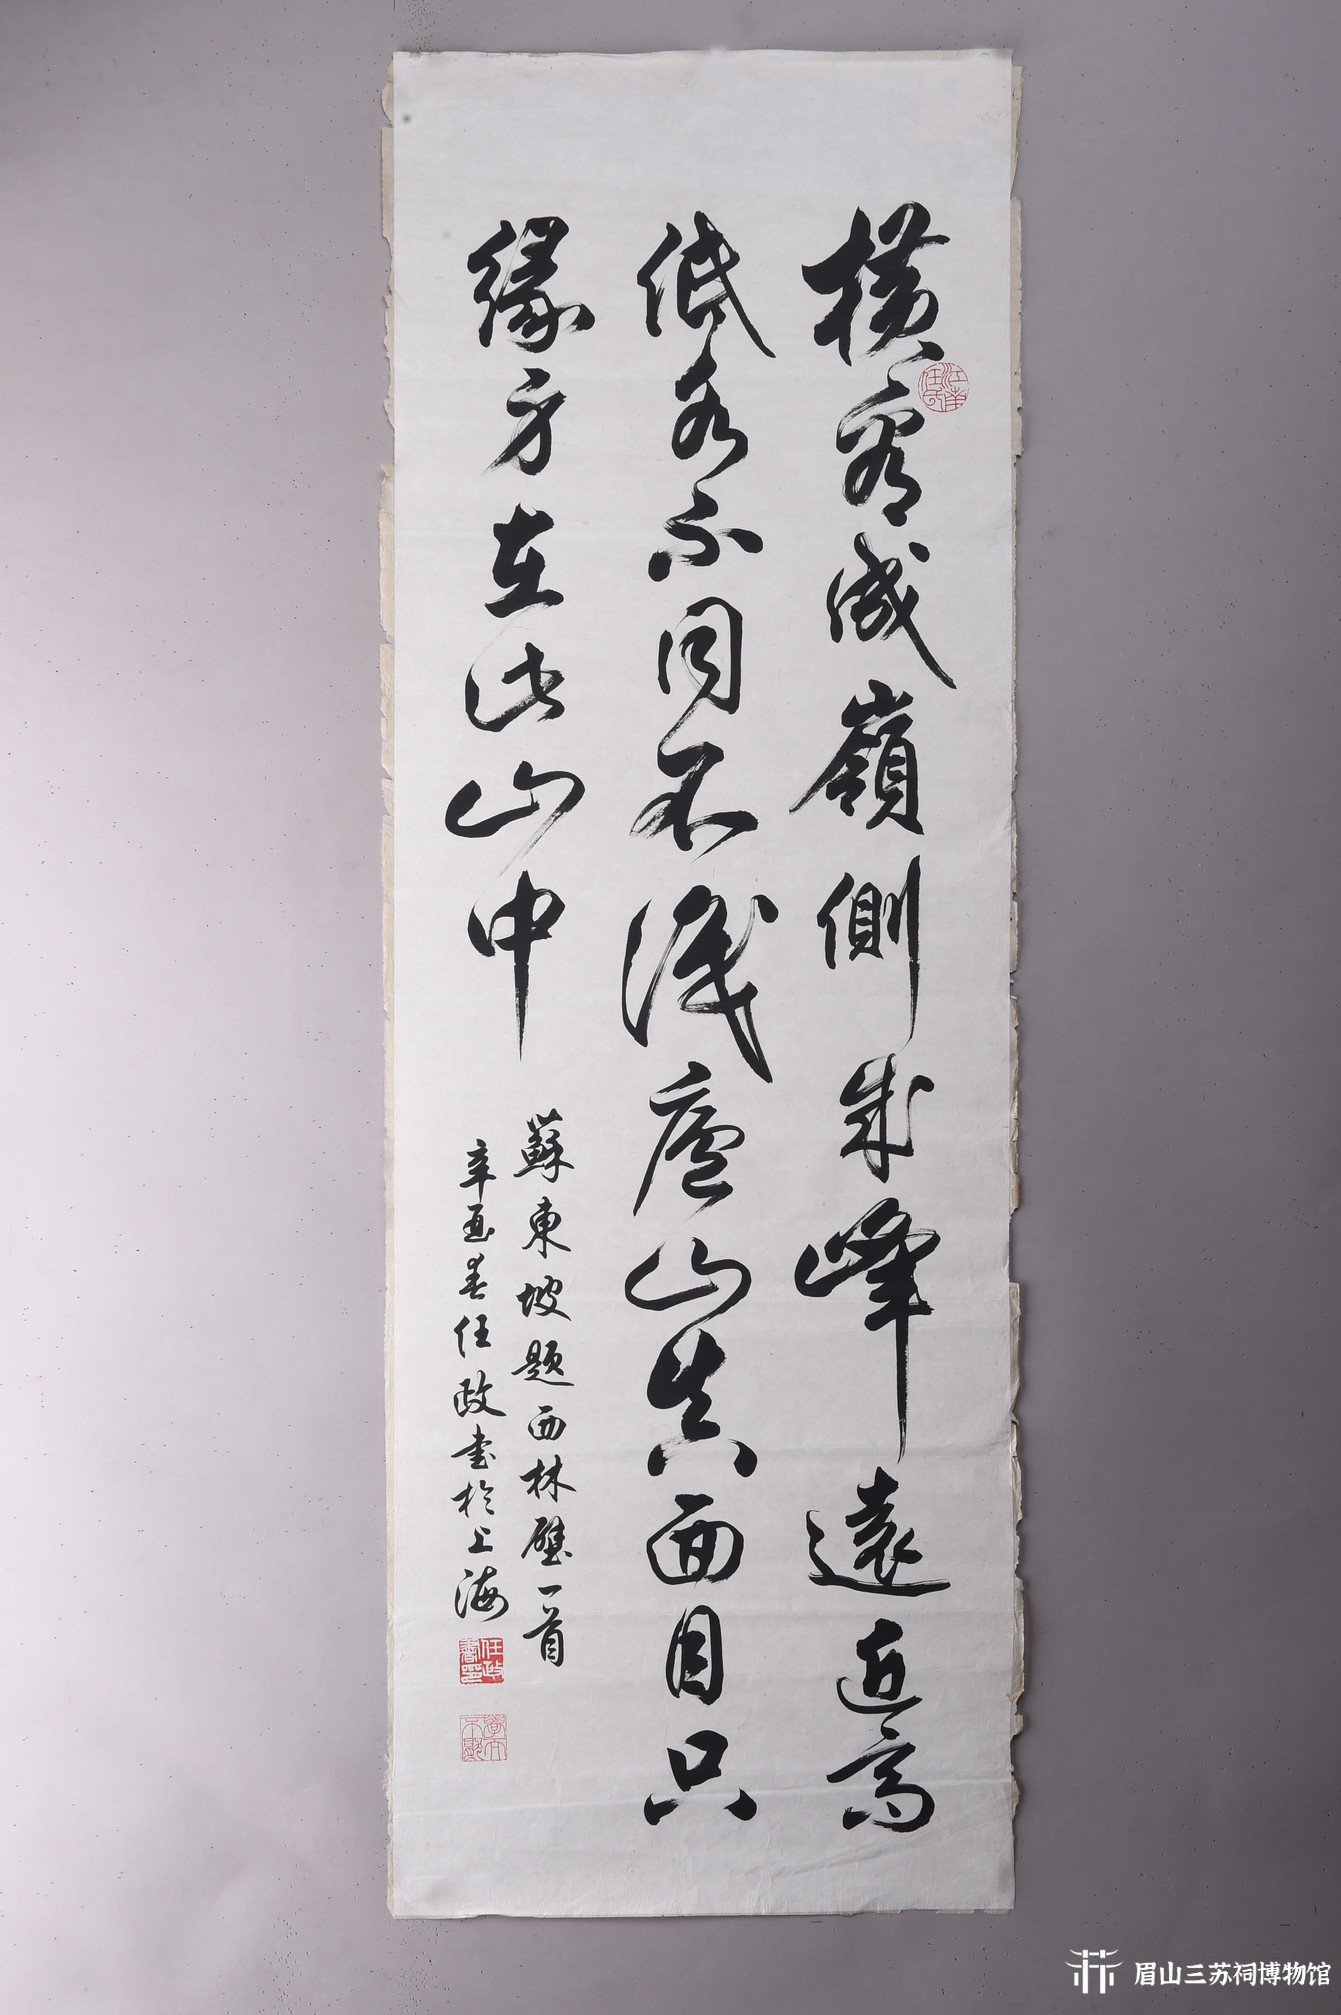 橫看成嶺側成峰遠近高
低各不同不識廬山真面目只
緣身在此山中
蘇東坡題西林壁一首
辛酉春任政書於上海
江南任氏
任政書印
眉山三苏祠博物馆